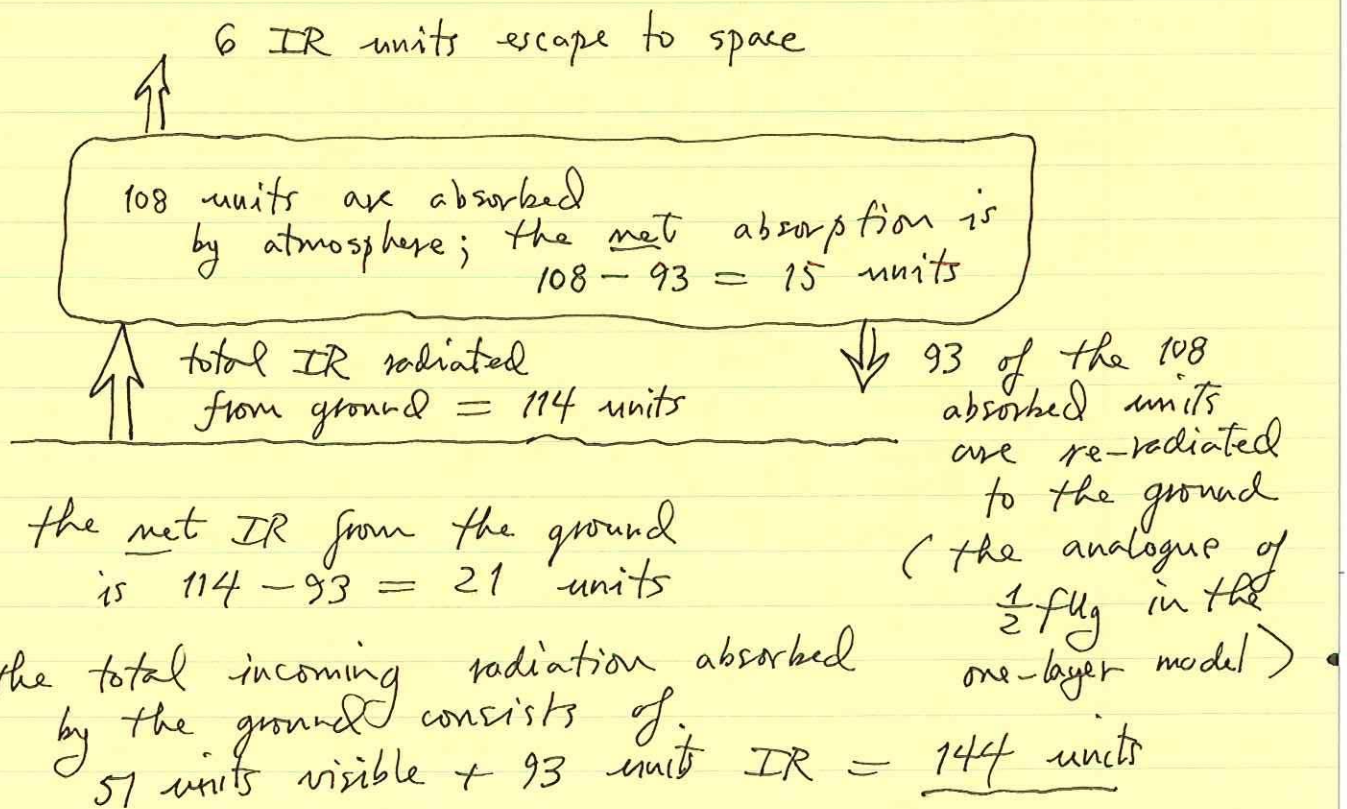 6 IR units escape to space
108 units are absorbed
by atmosphere; the net absorption is
108 - 93 = 15 units
total IR radiated
from ground = 114 units
93 of the 108
absorbed units
are re-radiated
to the ground
(the analogue of
½ fUg in the
one-layer model)
the net IR from the ground
is 114 - 93 = 21 units
the total incoming radiation absorbed
by the ground consists of.
51 units visible + 93 units IR = 144 units